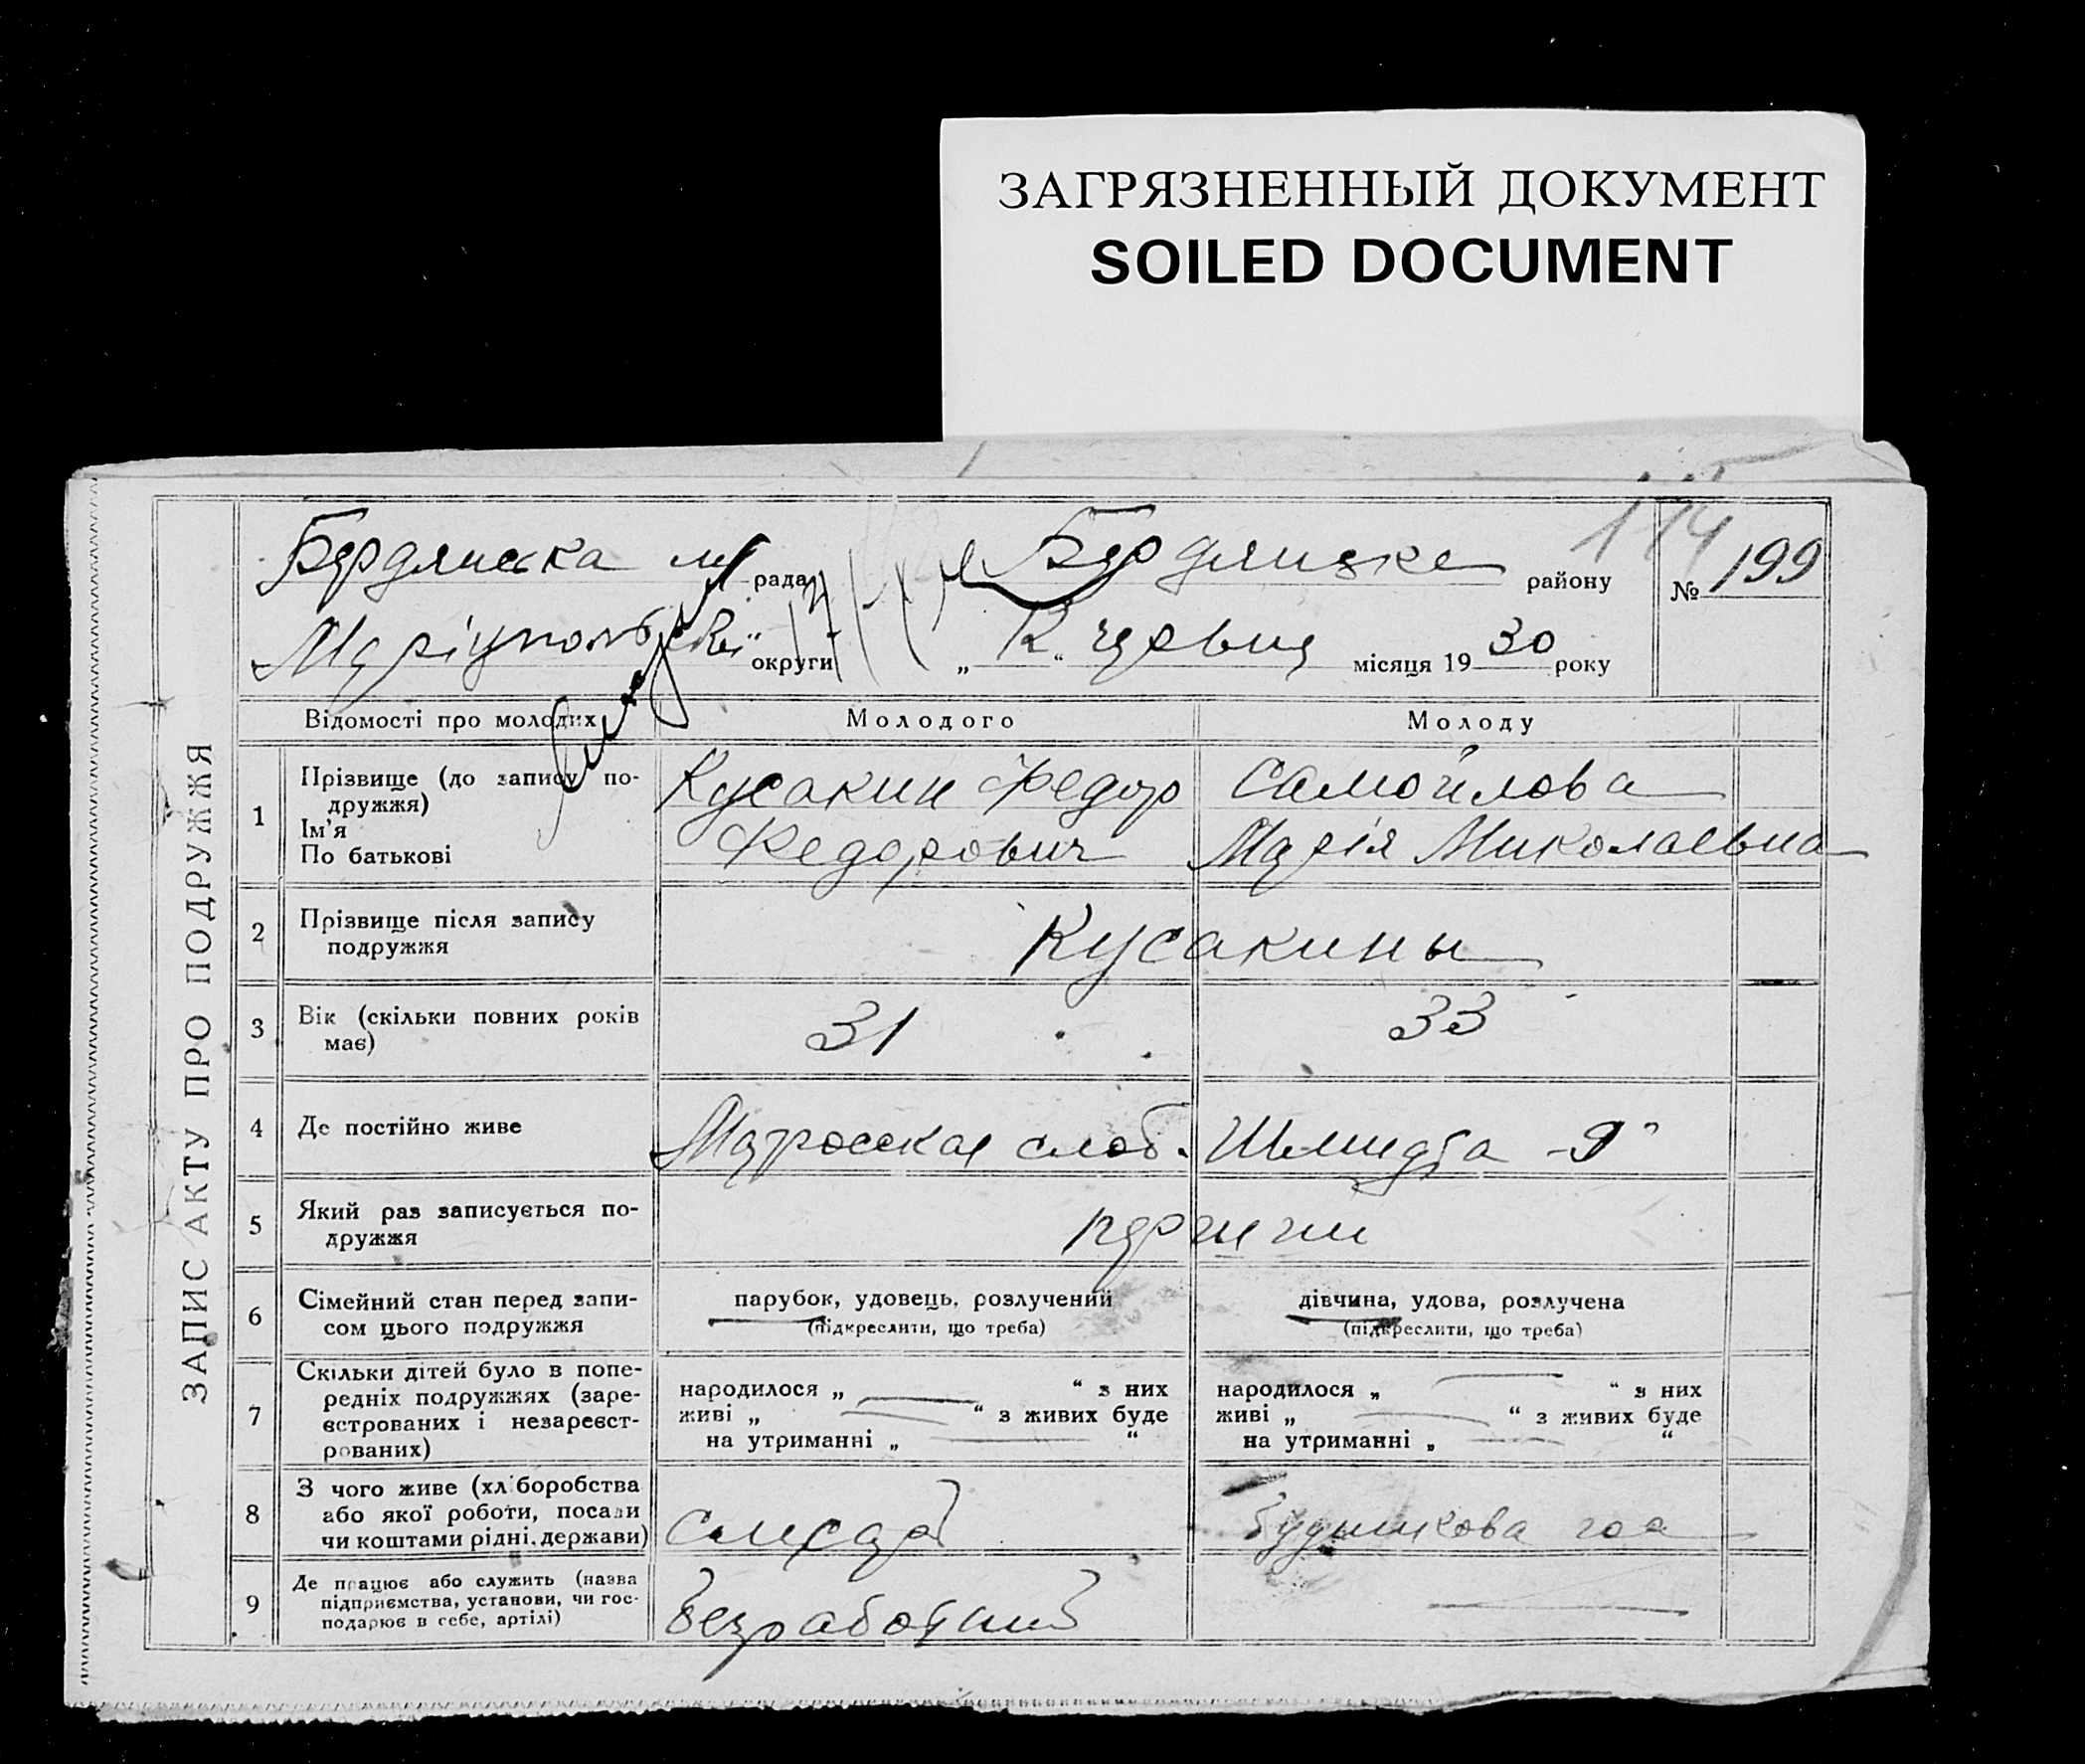 ЗАГРЯЗНЕННЫЙ ДОКУМЕНТ
SOILED DOCUMENT
114
Бердянска м рада Бердянске району № 199
Маріупольскої округи „ 12 “ червня місяця 1930 року
ЗАПИС АКТУ ПРО ПОДРУЖЖЯ
Відомості про молодих Молодого Молоду
1 Прізвище (до запису по-
дружжя)
Ім'я
По батькові
Кусакин Федор
Федорович
Самойлова
Марія Миколаевна
2 Прізвище після запису
подружжя
Кусакины
3 Вік (скільки повних років
має)
31 33
4 Де постійно живе Матросская слоб. Шмидта - 9
5 Який раз записується по-
дружжя
6 Сімейний стан перед запи-
сом цього подружжя
парубок, удовець, розлучений
(підкреслити, що треба)
дівчина, удова, розлучена
(підкреслити, що треба)
7 Скільки дітей було в попе-
редніх подружжях (заре-
єстрованих і незареєст-
рованих)
народилося „ “ з них
живі „ “ з живих буде
на утриманні „ “
народилося „ “ з них
живі „ “ з живих буде
на утриманні „ “
8 З чого живе (хліборобства
або якої роботи, посади
чи коштами рідні, держави)
9 Де працює або служить (назва
підприємства, установи, чи гос-
подарює в себе, артілі)
безработний